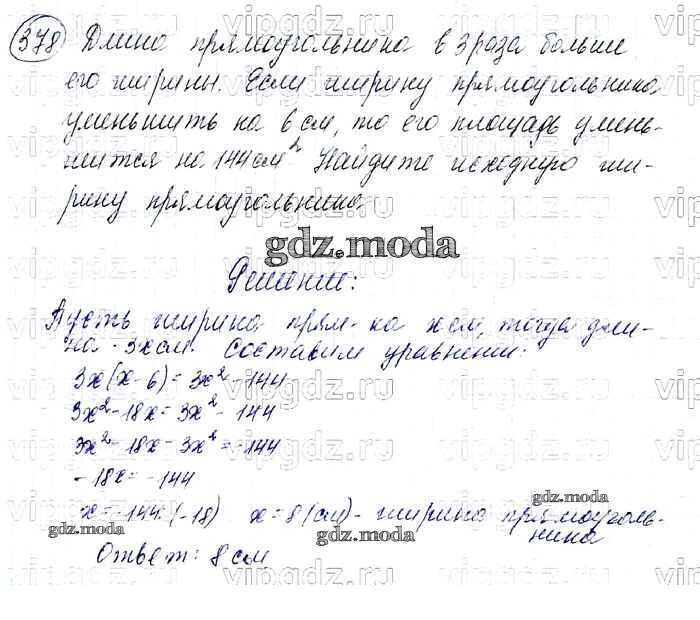 378 Длина прямоугольника в 3 раза больше
его ширины. Если ширину прямоугольника
уменьшить на 6 см, то его площадь умень-
шится на 144 см². Найдите исходную ши-
рину прямоугольника.
gdz.moda
Решение:
Пусть ширина прям-ка x см, тогда дли-
на - 3x см. Составим уравнение:
3x(x-6)=3x²-144
3x²-18x=3x²-144
3x²-18x-3x²=-144
-18x=-144
x=-144:(-18) x=8(см)- ширина прямоуголь-
ника
Ответ: 8 см
gdz.moda
gdz.moda
gdz.moda
vipgdz.ru